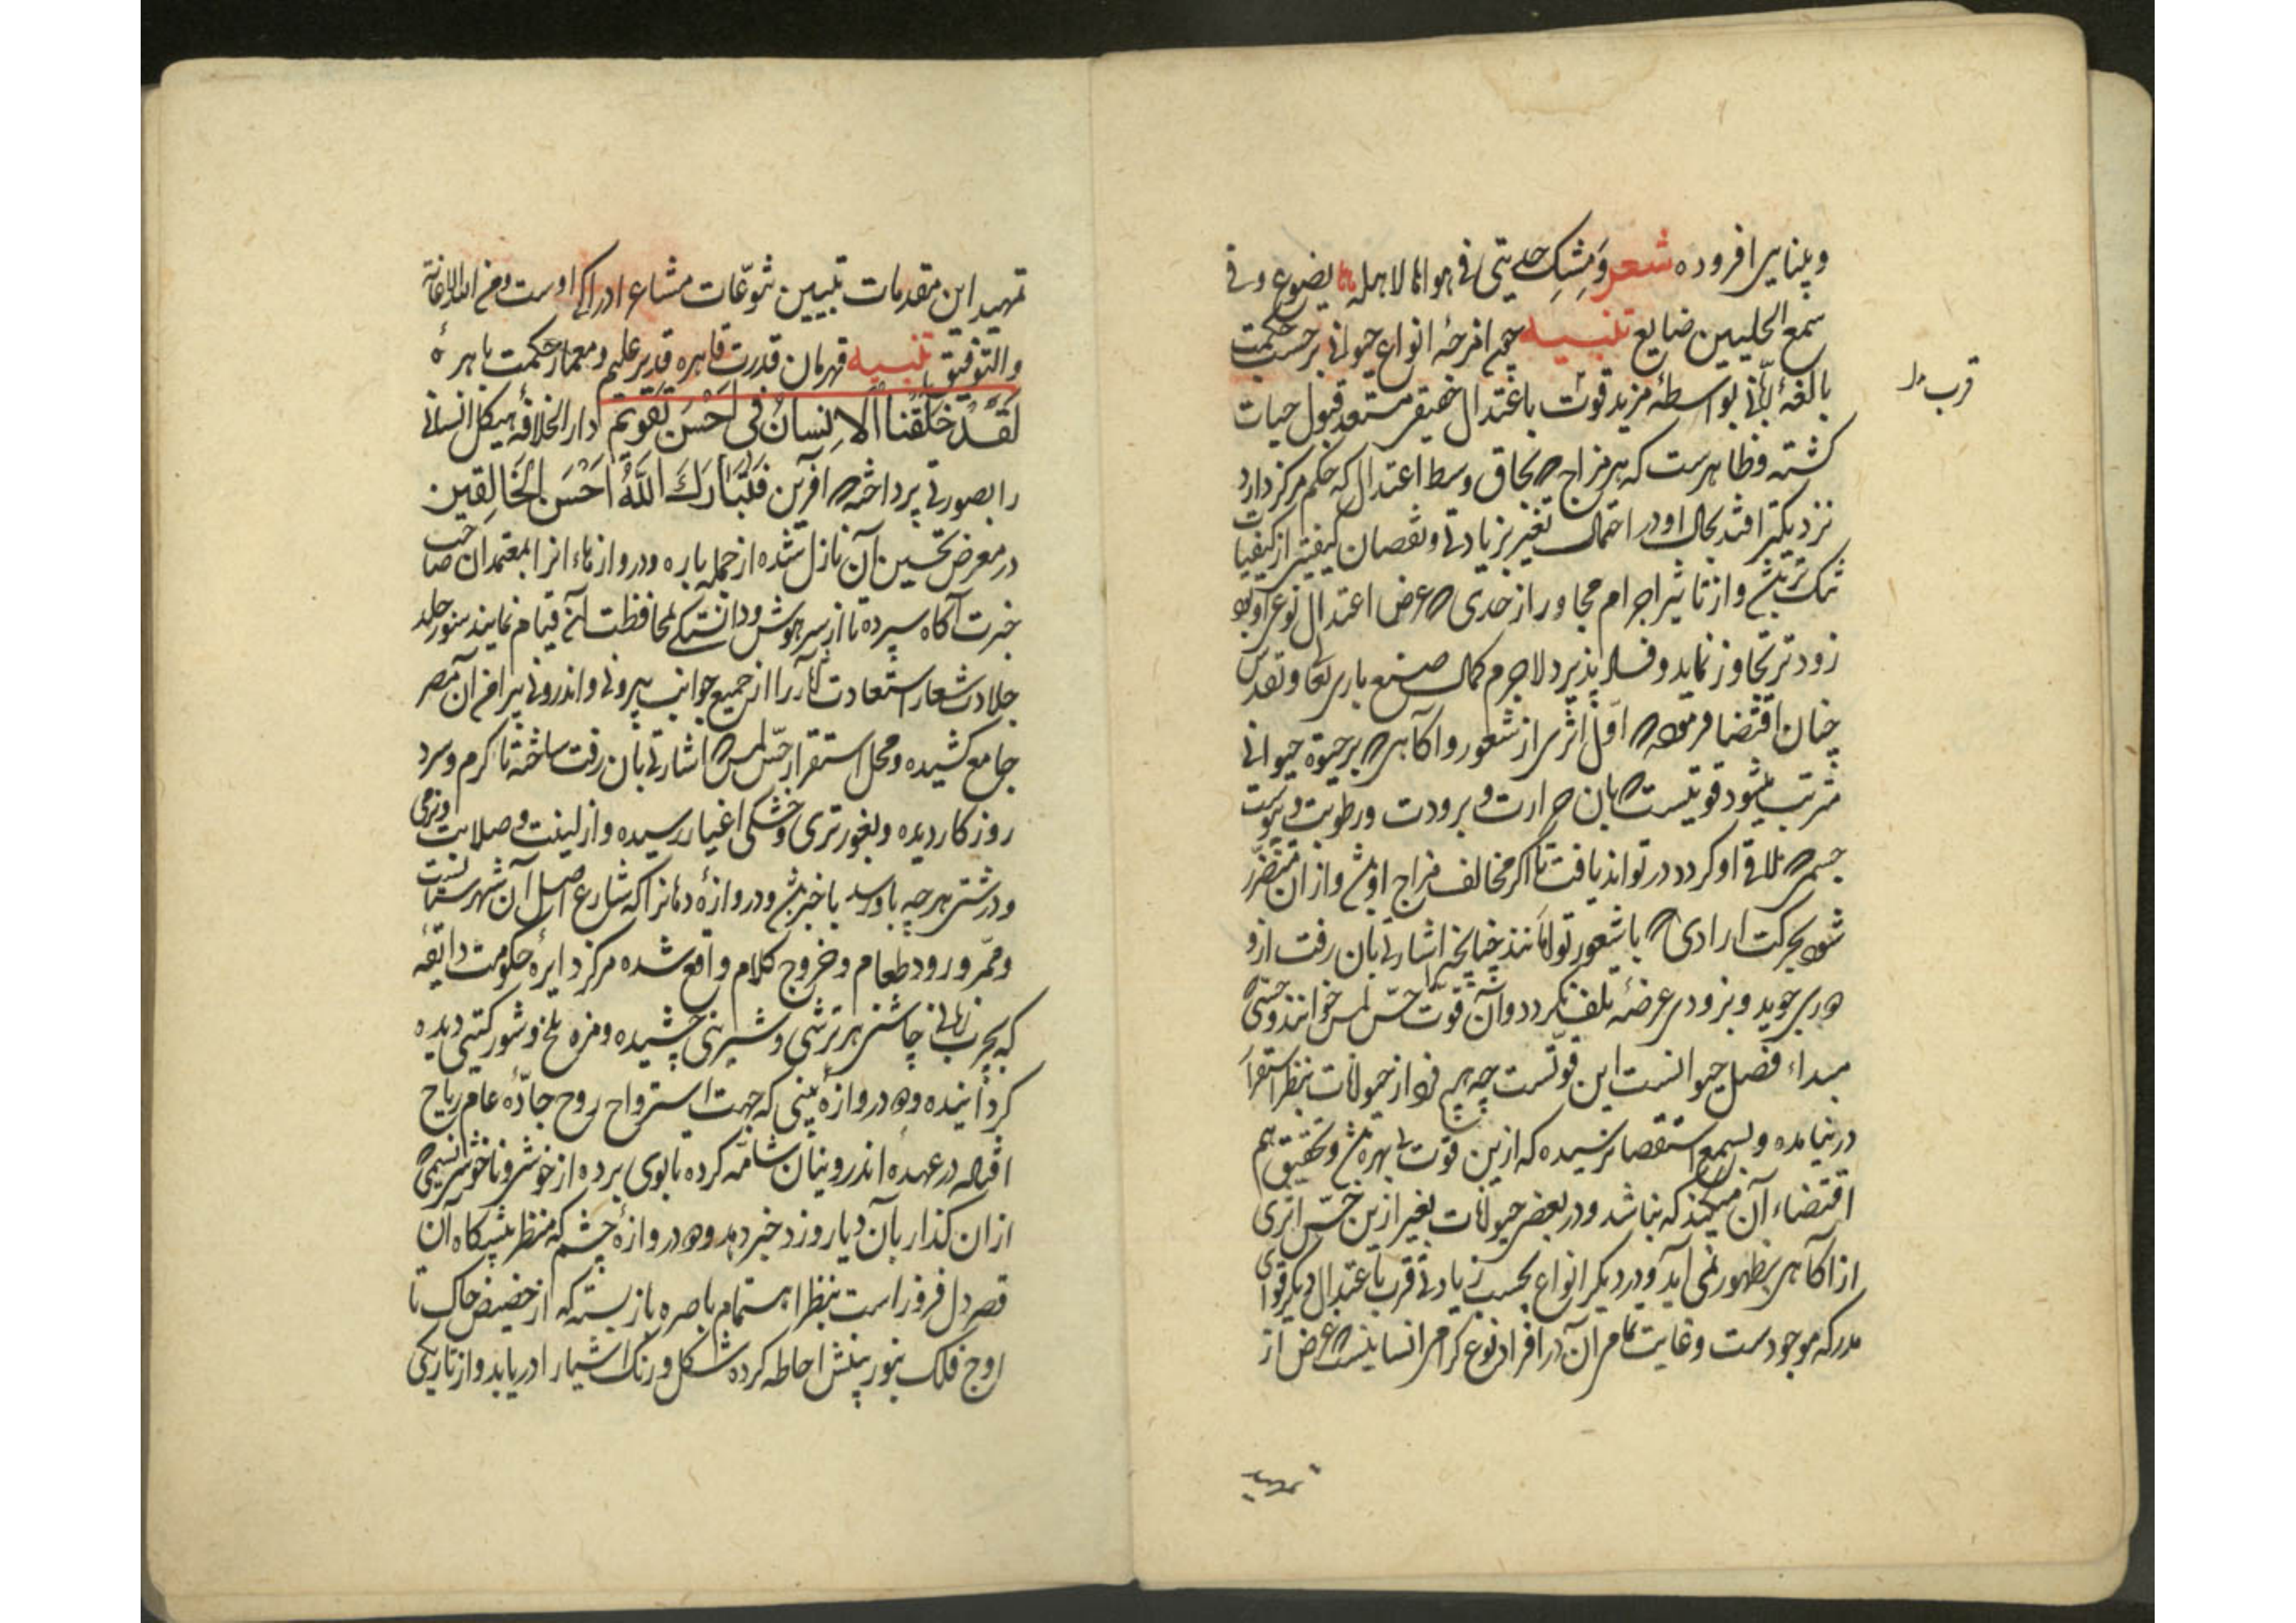 وبینایی افزوده شعر ومشک حدیثی فی هوانا لاهله یضوع وفی
سمع الخلیین ضایع تنبیه چون امزجهٔ انواع حیوانی برحسب حکمت
بالغهٔ ربّانی بواسطهٔ مزید قوت باعتدال حقیقی مستعد قبول حیات
قرب
کشته وظاهرست که هر مزاج که بحاق وسط اعتدال که حکم مرکز دارد
نزدیکتر افتد بحال او در احتمال تغیر بزیادتی ونقصان کیفیتی از کیفیات
وازتاثیر اجرام مجاور از حدی که عرض اعتدال نوعی
زودتر تجاوز نماید وفساد پذیرد لاجرم کمال صنع باری تعالی وتقدس
چنان اقتضا فرمود که اول اثری از شعور واکاهی که بر حیوة حیوانی
مترتب میشود قوتیست که بان حرارت وبرودت ورطوبت ویبوست
جسمی که ملاقی او کردد در تواند یافت تا اکر مخالف مزاج او باشد وازان متضرر
شود بحرکت ارادی که با شعور توامانند چنانچه اشارتی بان رفت ازو
دوری جوید وبزودی عرضهٔ تلف نکردد وآن قوّت حسّ لمس خوانند وحتی که
مبداء فصل حیوانست این قوّتست چه هیچ فرد از حیوانات بنظر استقرا
در نیامده وبسمع استقصا نرسیده که ازین قوت بی بهره باشد وتحقیق هم
اقتضاء آن میکند که نباشد ودر بعضی حیوانات بغیر ازین حسّ اثری
از اکاهی بظهور نمی آید ودر دیکر انواع بحسب زیادتی قرب باعتدال دیکر قوای
مدرکه موجودست وغایت تمامی آن در افراد نوع کرامی انسانیست که غرض از
تمهید
تمهید این مقدمات تبیین تنوّعات مشاعر ادراکی اوست ومن الله الاعانة
والتوفیق تنبیه قهرمان قدرت قاهره قدیر علیم ومعمار حکمت باهره
لَقَدْ خَلَقْنَا الاِنسانَ فی اَحْسَنِ تَقْویمٍ دار الخلافهٔ هیکل انسانی
را بصورتی پرداخته که آفرین فَتَبارَكَ اللَّهُ اَحْسَنُ الْخَالِقین
در معرض تحسین آن نازل شده از جمله باره ودروازهاء انرا بمعتمدان صاحب
خبرت آکاه سپرده تا از سر هوش ودانستکی بمحافظت آن قیام نمایند سور جلد
جلادت شعار استعادت آثار را از جمیع جوانب بیرونی واندرونی پیرامن آن مصر
جامع کشیده ومحل استقرار حسّ لمس که اشارتی بان رفت ساخته تا کرم وسرد
روزکار دیده وبغور تری وخشکی اغیار رسیده واز لینت وصلابت ونرمی
ودرشتی هرچه باو رسد با خبر باشد ودروازهٔ دهانرا که شارع اصل آن شهرستانست
وممرّ ورود طعام وخروج کلام واقع شده مرکز دایرهٔ حکومت ذائقه
که بجرب زبانی چاشنی هر ترشی وشیرینی چشیده ومزه تلخ وشور کیتی دیده
کردانیده ودو دروازهٔ بینی که جهت استرواح روح جادّهٔ عام ریاح
افتاده در عهده اندروینان شامّه کرده تا بوی برده از خوش وناخوش نسیمی که
ازان کذار بآن دیار وزد خبر دهد ودو دروازهٔ چشم که منظر پیشکاه آن
قصر دل فروز است بنظر اهتمام باصره باز بسته که از حضیض خاک تا
اوج فلک بنور بینش احاطه کرده شکل ورنک اشیا را دریابد واز تاریکی